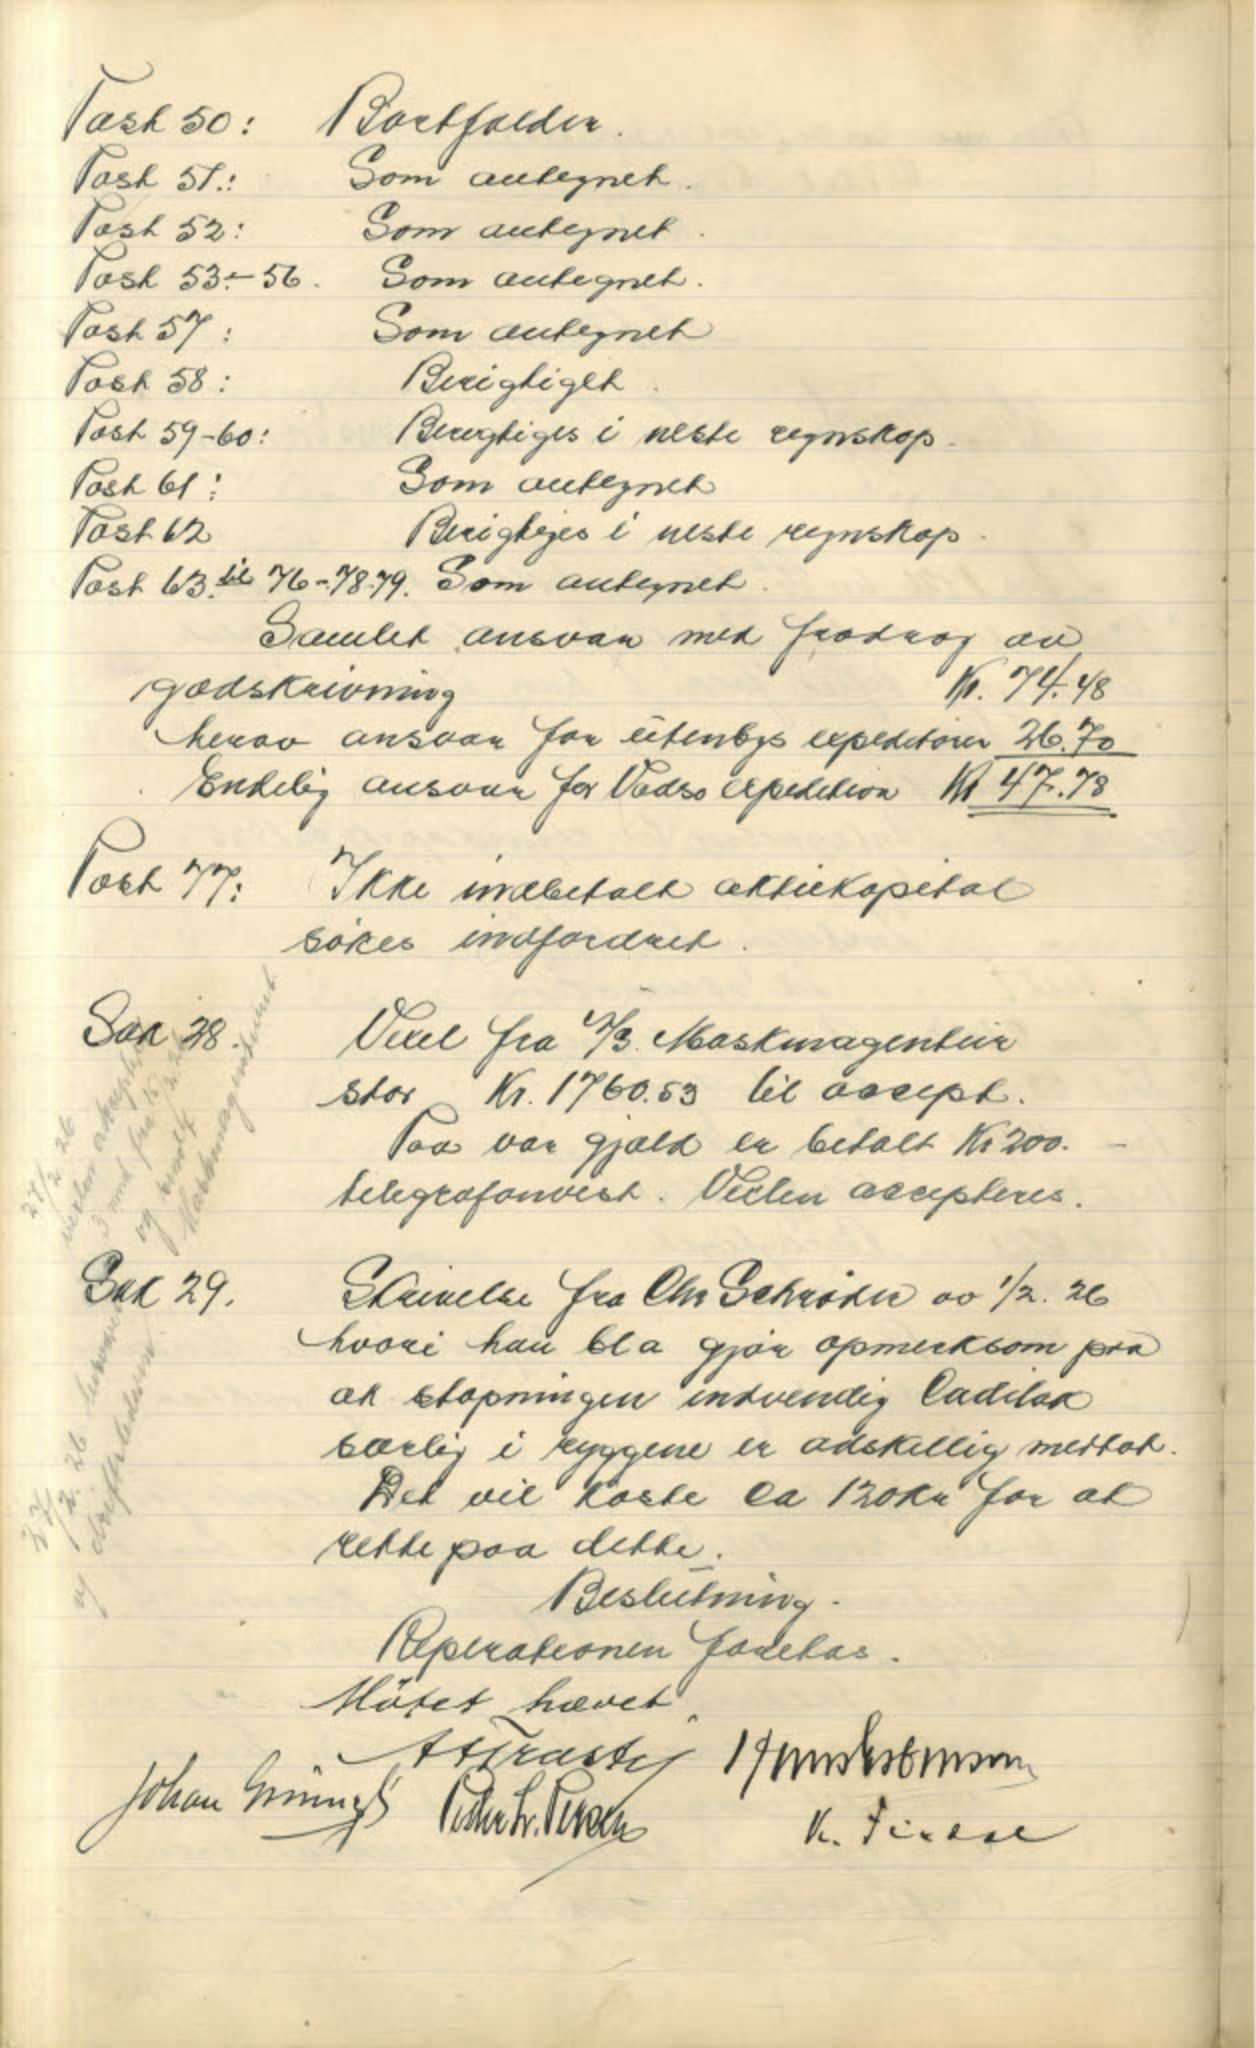 Post 50: Bortfalder.
Post 51.: Som antegnet.
Post 52: Som antegnet.
Post 53.-56. Som antegnet.
Post 57: Som antegnet
Post 58: Berigtiget.
Post 59-60: Berigtiges i neste regnskap.
Post 61: Som antegnet
Post 62 Berigtiges i neste regnskap.
Post 63. til 76-78-79. Som antegnet.
Samlet ansvar med fradrag av
godskrivning Kr. 74.48
herav ansvar for utenbys expeditører 26.70
Endelig ansvar for Vadsø expedition Kr 47.78
Post 77: Ikke indbetalt aktiekapital
søkes indfordret.
Sak 28. Vexel fra A/S. Maskinagentur
stor Kr. 1760.53 til accept.
Paa vor gjæld er betalt Kr 200.-
telegrafanvist. Vexlen accepteres.
27/2.26
vexlen aksepteret
3 mnd fra 15/2 26
og sendt
Maskinagenturet
Sak 29. Skrivelse fra Chr Schrøder av 1/2. 26
hvori han bl a gjør opmerksom paa
at stopningen indvendig Cadilak
særlig i ryggene er adskillig medtat.
Det vil koste ca 120 Kr for at
rette paa dette.
Beslutning.
Reperationen foretas.
Møtet hævet.
27/2.26
og driftsledelsen
Johan Peder K.